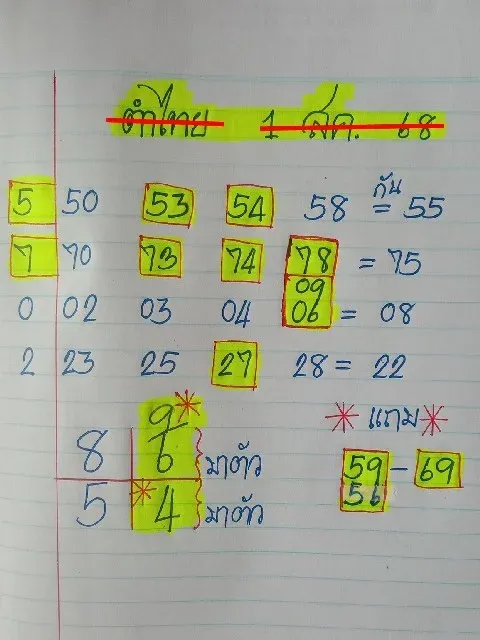 ตำไทย 1 สค. 68
5 50 53 54 58 กัน = 55
7 70 73 74 78 = 75
09
0 02 03 04 06 = 08
2 23 25 27 28 = 22
9*
* แถม *
8 6 } มาตัว
59 - 69
56
5 *4 } มาตัว